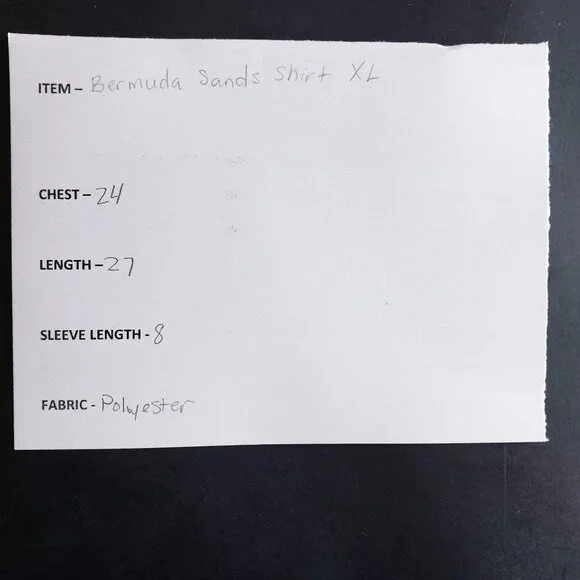 ITEM – Bermuda Sands Shirt XL
CHEST – 24
LENGTH – 27
SLEEVE LENGTH - 8
FABRIC - Polyester